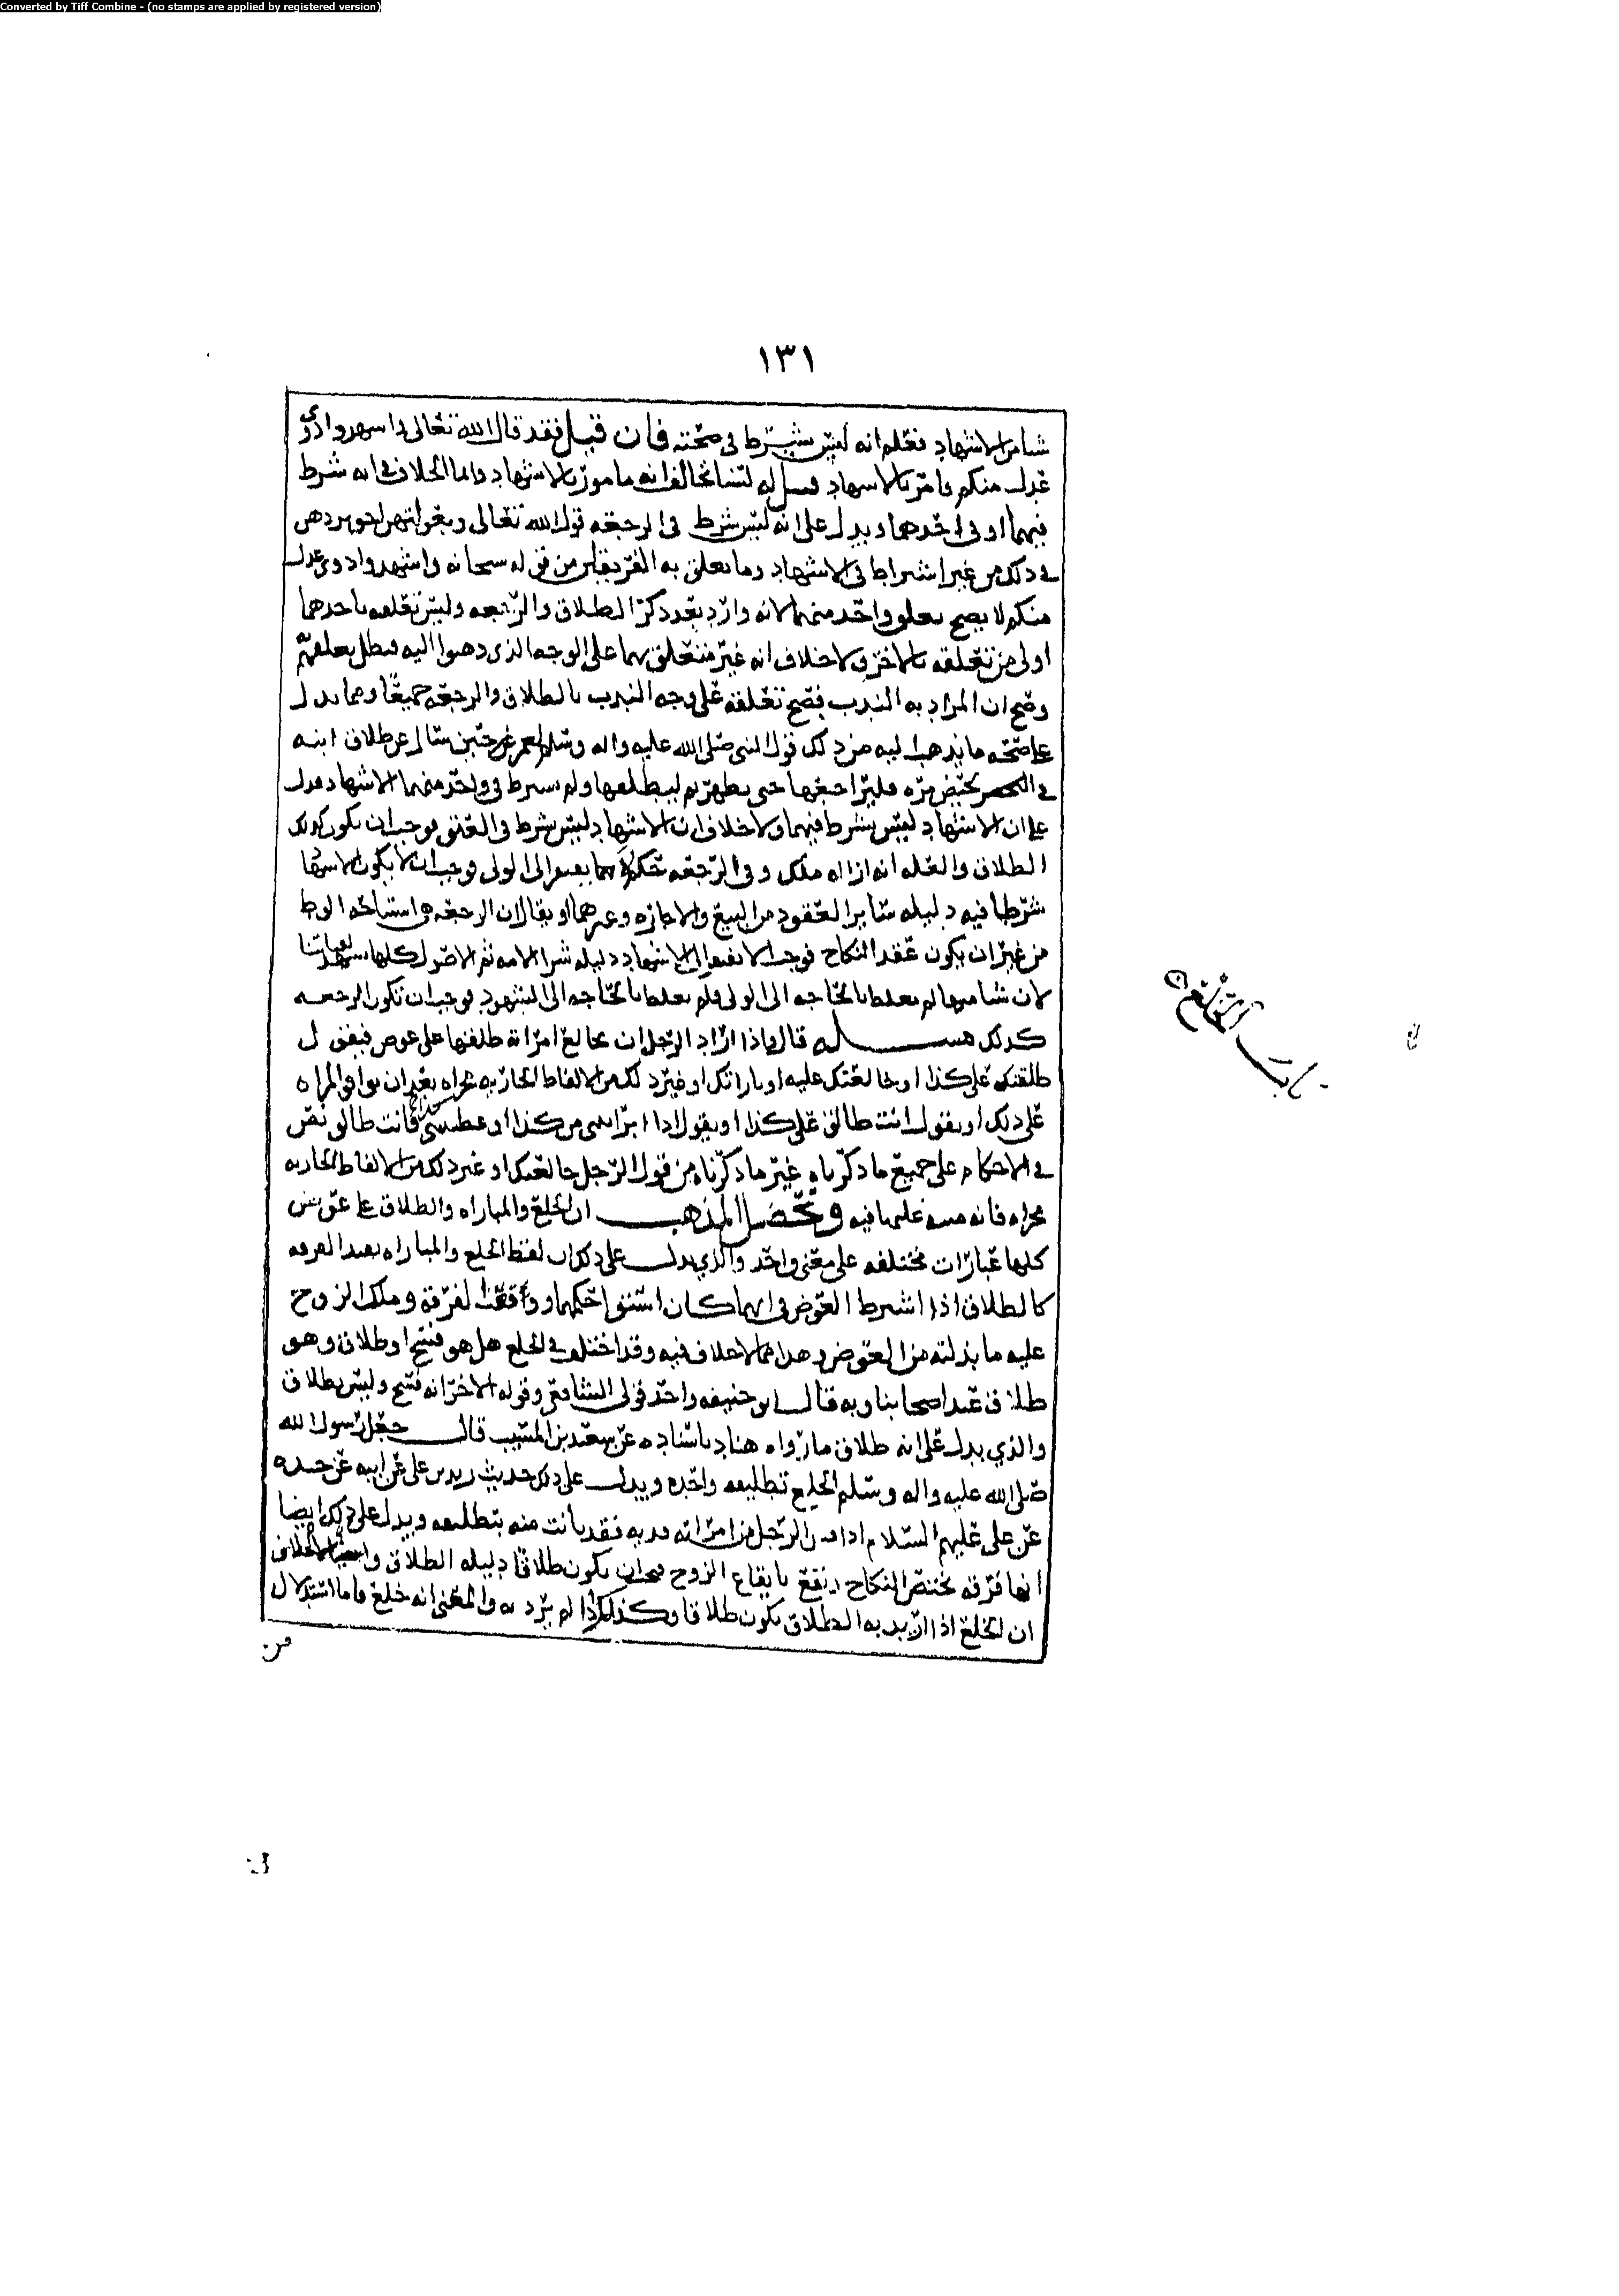 Converted by Tiff Combine - (no stamps are applied by registered version)
١٣١
شامن الاشهاد فعلم انه ليس بشرط فى صحته فان قيل فقد قال الله تعالى واشهدوا ذوى
عدل منكم وامر بالاشهاد قيل له لسنا نخالف انه مامور بالاشهاد وانما الخلاف فى انه شرط
فيهما او فى احدهما ويدل على انه ليس شرط فى الرجعه قول الله تعالى وبعولتهن احق بردهن
فى ذلك من غير اشتراط فى الاشهاد وما تعلق به الفريقان من قوله سبحانه واشهدوا ذوى عدل
منكم لا يصح تعلق واحد منهما لانه وارد بعد ذكر الطلاق والرجعه وليس تعلقه باحدهما
اولى من تعلقه بالاخر ولا خلاف انه غير متعلق بهما على الوجه الذى ذهبوا اليه فبطل تعلقهم
وصح ان المراد به الندب فصح تعلقه على وجه الندب بالطلاق والرجعه جميعا ومما يدل
على صحه ما نذهب اليه من ذلك قول النبى صلى الله عليه واله وسلم لعمر حين سال عن طلاق ابنه
فى الحيض مره فليراجعها حتى تطهر ثم ليطلقها ولم يشترط فى واحد منهما الاشهاد فدل
على ان الاشهاد ليس بشرط فيهما ولا خلاف ان الاشهاد ليس شرط فى العتق فوجب ان يكون كذلك
الطلاق والعله انه ازاله ملك وفى الرجعه حكم لا يفتقر الى الولى فوجب ان لا يكون الاشهاد
شرطا فيه دليله سائر العقود من البيع والاجاره وغيرهما او يقال ان الرجعه هى استباحه الوطء
من غير ان يكون عقد النكاح فوجب الا تفتقر الى الاشهاد دليله شرا الامه ثم الاصول كلها تشهد لقياسنا
لان شا منها لم يعلط بالحاجه الى الولى ولم يعلط بالحاجه الى الشهود فوجب ان تكون الرجعه
كذلك مســـله قال واذا اراد الرجل ان يخالع امراته طلقها على عوض فيقول
طلقتك على كذا او خالعتك عليه او باراتك او غير ذلك من الالفاظ الجاريه مجراه بعد ان توافق المراه
على ذلك او يقول انت طالق على كذا او يقول اذا ابراتنى من كذا او اعطيتنى فانت طالق نص
فى الاحكام على جميع ما ذكرناه غير ما ذكرناه من قول الرجل خالعتك او غير ذلك من الالفاظ الجاريه
مجراه فانه منبه عليها فيه وتحصيل المذهب ان الخلع والمباراه والطلاق على عوض
كلها عبارات مختلفه على معنى واحد والذي يدل على ذلك ان لفظ الخلع والمباراه يفيد الفرقه
كالطلاق اذا اشترط العوض فى ايهما كان استوى حكمهما ووقعت الفرقه وملك الزوج
عليه ما بذلته من العوض وهذا مما لا خلاف فيه وقد اختلف فى الخلع هل هو فسخ او طلاق وهو
طلاق عند اصحابنا وبه قال ابو حنيفه واحد قولى الشافعى وقوله الاخر انه فسخ وليس بطلاق
والذي يدل على انه طلاق ما رواه هناد باسناده عن سعيد بن المسيب قال جعل رسول الله
صلى الله عليه واله وسلم الخلع تطليقه واحده ويدل على ذلك حديث زيد بن على عن ابيه عن جده
عن على عليهم السلام اذا قبل الرجل من امراته فديه فقد بانت منه بتطليقه ويدل على ذلك ايضا
انها فرقه تختص النكاح وتقع بايقاع الزوج فيجب ان يكون طلاقا دليله الطلاق و
ان الخلع اذا اريد به الطلاق يكون طلاقا وكذلك اذا لم يرد به والمعنى انه خلع واما استدلال
من
باب الخلع